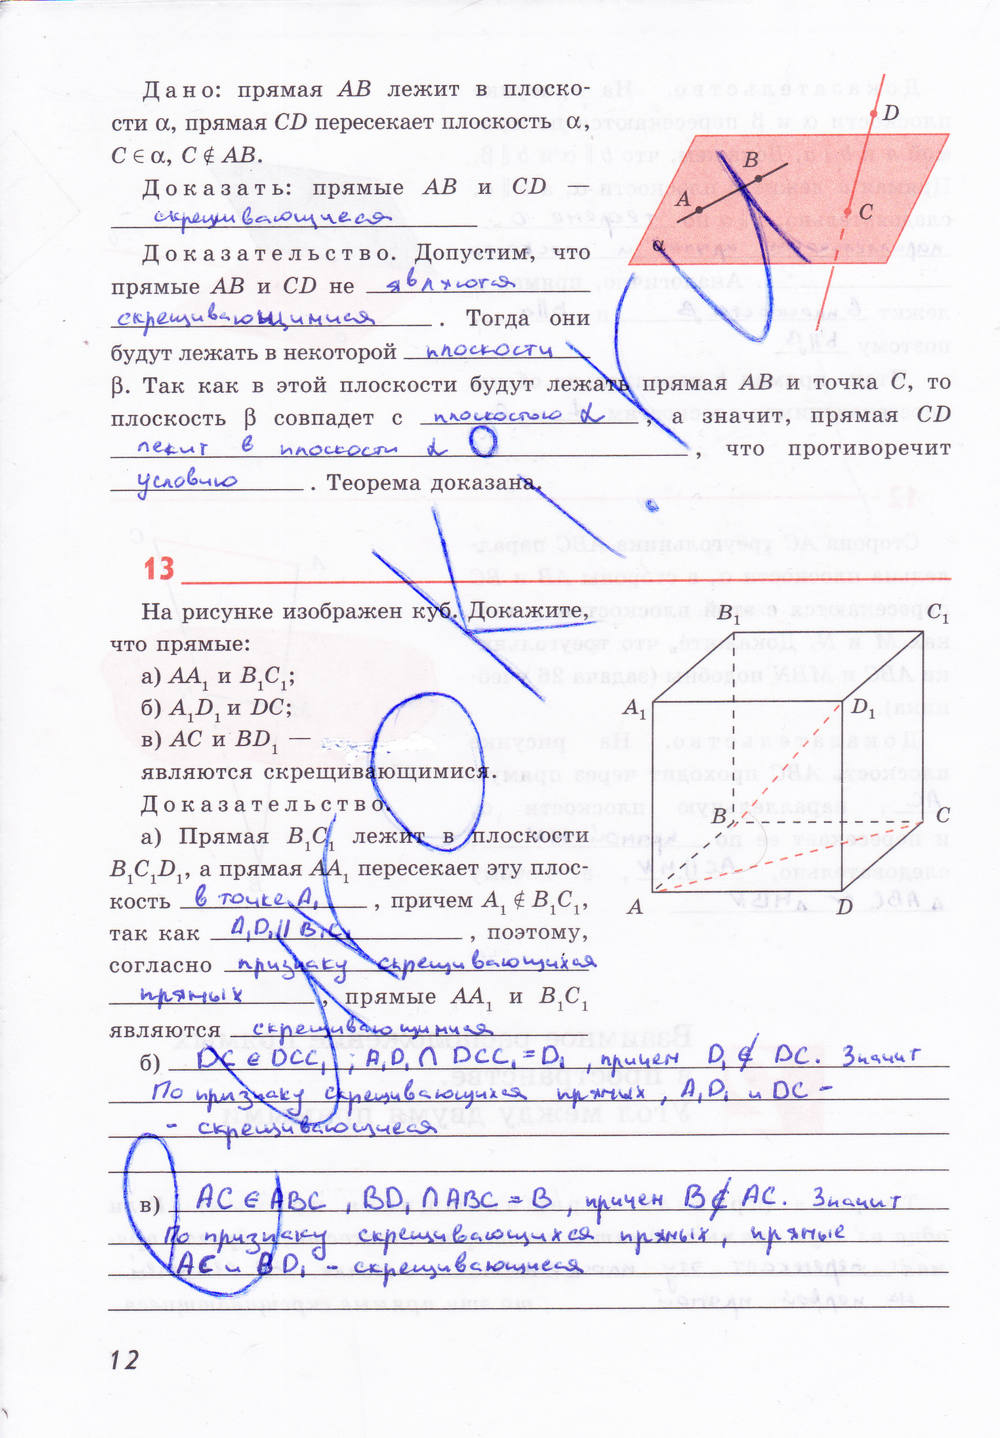 Дано: прямая AB лежит в плоско-
сти α, прямая CD пересекает плоскость α,
C ∈ α, C ∉ AB.
Доказать: прямые AB и CD —
скрещивающиеся
Доказательство. Допустим, что
прямые AB и CD не являются
скрещивающимися. Тогда они
будут лежать в некоторой плоскости
β. Так как в этой плоскости будут лежать прямая AB и точка C, то
плоскость β совпадет с плоскостью α, а значит, прямая CD
лежит в плоскости α, что противоречит
условию. Теорема доказана.
A
B
C
D
α
13
На рисунке изображен куб. Докажите,
что прямые:
а) AA₁ и B₁C₁;
б) A₁D₁ и DC;
в) AC и BD₁ —
являются скрещивающимися.
Доказательство.
а) Прямая B₁C₁ лежит в плоскости
B₁C₁D₁, а прямая AA₁ пересекает эту плос-
кость в точке A₁, причем A₁ ∉ B₁C₁,
так как A₁D₁ || B₁C₁, поэтому,
согласно признаку скрещивающихся
прямых, прямые AA₁ и B₁C₁
являются скрещивающимися
B₁
C₁
A₁
D₁
B
C
A
D
б) DC ∈ DCC₁; A₁D₁ ∩ DCC₁ = D₁ причем D₁ ∉ DC. Значит
По признаку скрещивающихся прямых, A₁D₁ и DC -
- скрещивающиеся
в) AC ∈ ABC, BD₁ ∩ ABC = B, причем B ∉ AC. Значит
По признаку скрещивающихся прямых, прямые
AC и BD₁ - скрещивающиеся
12